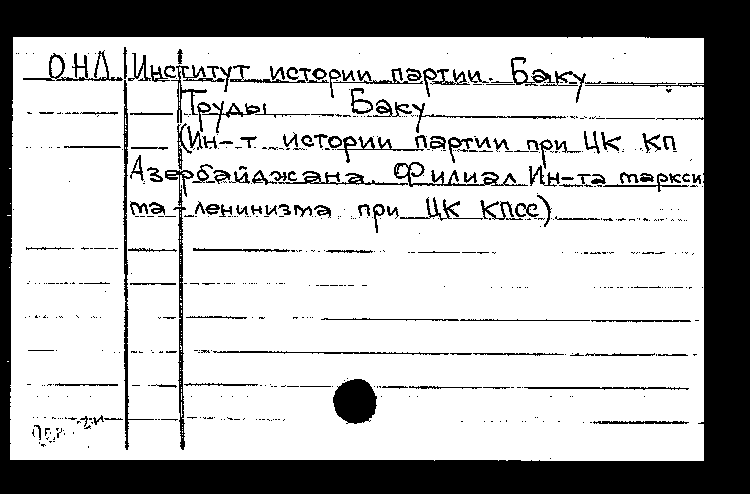 ОНЛ Институт истории партии. Баку
Труды Баку
(Ин-т истории партии при ЦК КП
Азербайджана. Филиал Ин-та маркси
ма-ленинизма при ЦК КПСС)